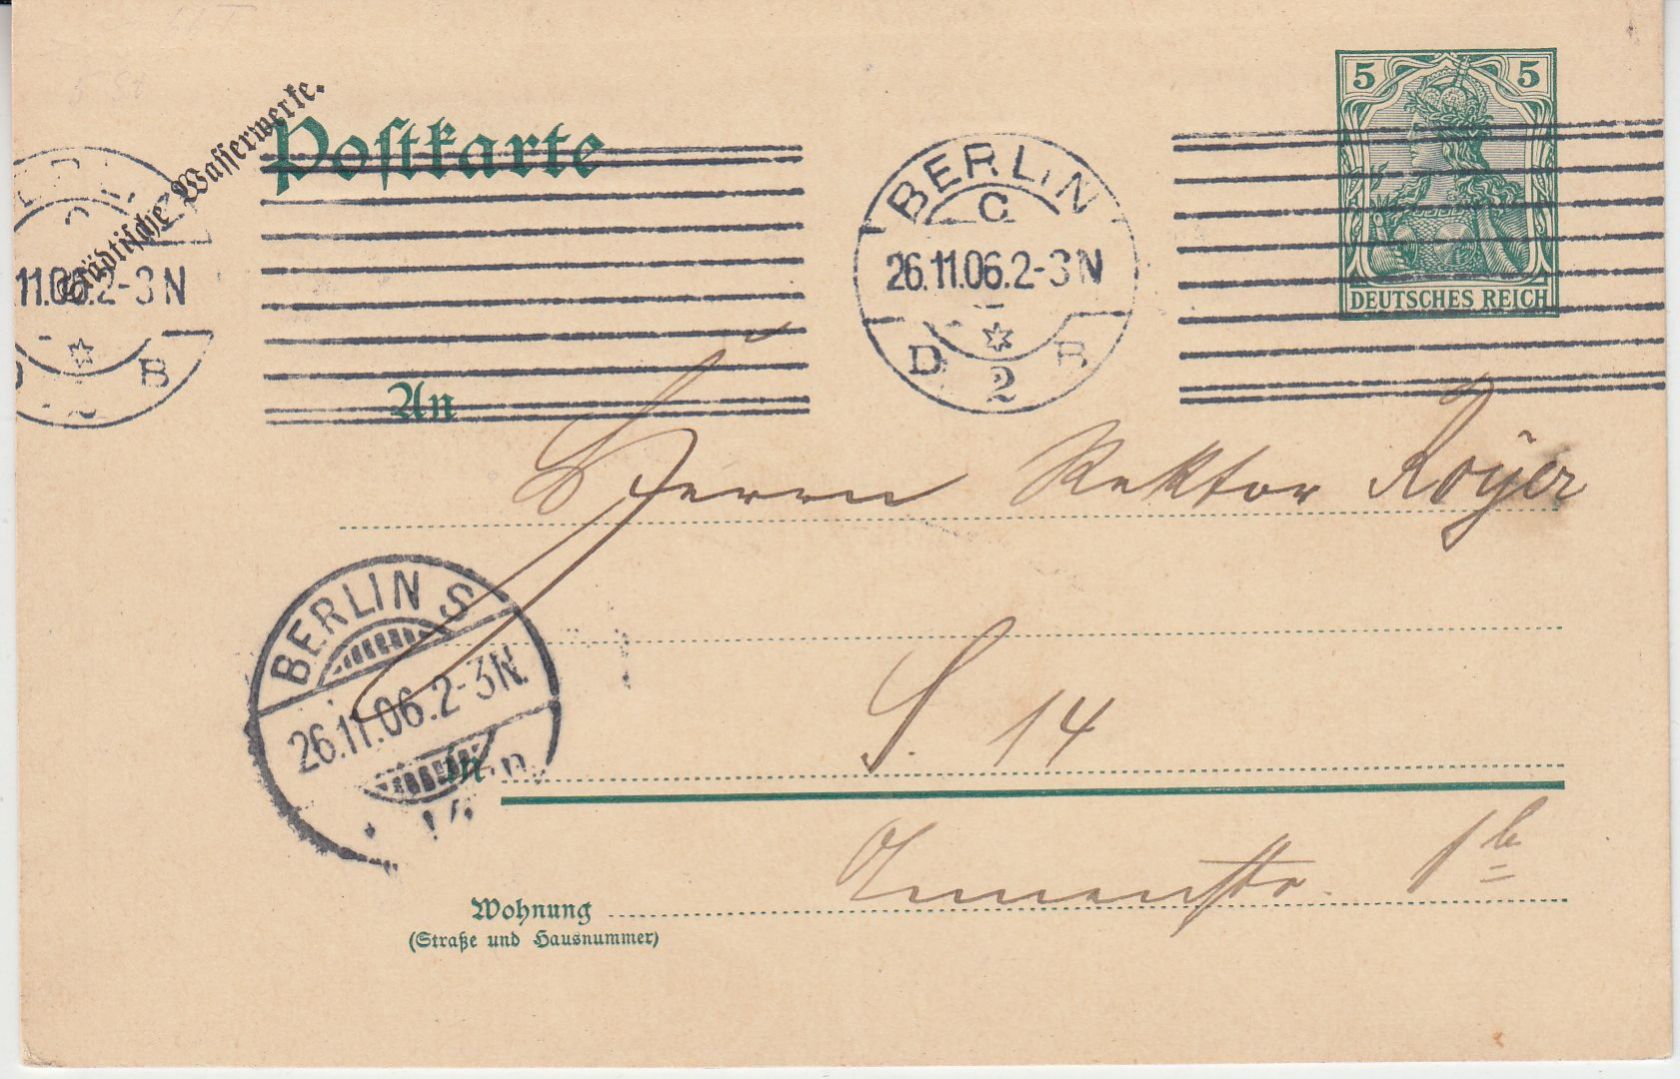 Städtische Wasserwerke.
Postkarte
5 5
DEUTSCHES REICH
11.06.2-3N
B
BERLIN
C
26.11.06.2-3N
D B
2
An
Herrn Rektor Royer
BERLIN S
26.11.06.2-3N.
In
S. 14
Wohnung
(Straße und Hausnummer)
1b